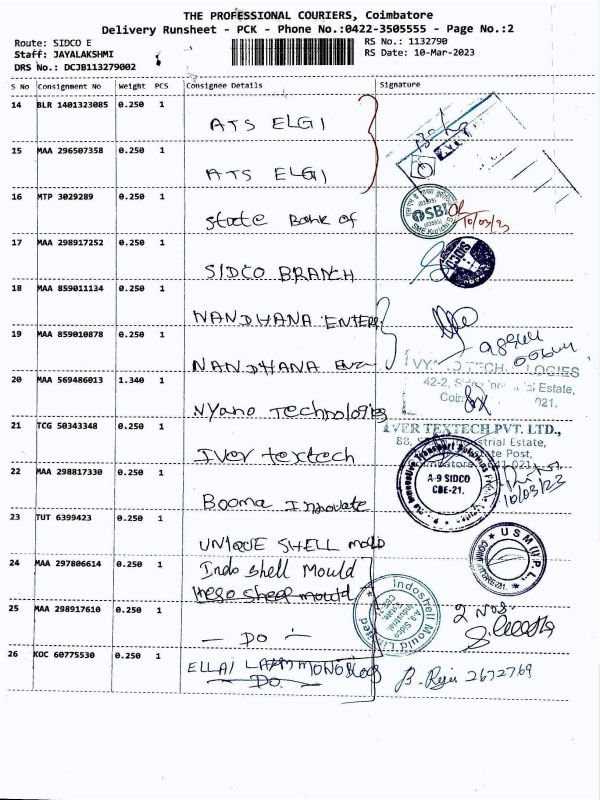 THE PROFESSIONAL COURIERS, Coimbatore
Delivery Runsheet - PCK - Phone No.:0422-3505555 - Page No.:2
Route: SIDCO E
Staff: JAYALAKSHMI
DRS No.: DCJB113279002
RS No.: 1132790
RS Date: 10-Mar-2023
S No Consignment No Weight PCS Consignee Details Signature
14 BLR 1401323085 0.250 1
ATS ELGI
15 MAA 296507358 0.250 1
ATS ELGI
16 MTP 3029289 0.250 1
State Bank of
SBI
10/03/23
17 MAA 298917252 0.250 1
SIDCO BRANCH
18 MAA 859011134 0.250 1
NANDHANA ENTER
19 MAA 859010878 0.250 1
NANDHANA
20 MAA 569486013 1.340 1
Nyano Technologies
42-2,
Estate,
021.
21 TCG 50343348 0.250 1
Iver textech
IVER TEXTECH PVT. LTD.,
88, Industrial Estate,
Post,
Coimbatore 641 021.
22 MAA 298817330 0.250 1
Booma Innovate
A-9 SIDCO
CBE-21.
10/03/23
23 TUT 6399423 0.250 1
UNIQUE SHELL mold
USM (I) P.L.
COIMBATORE-21.
24 MAA 297806614 0.250 1
Indo shell Mould
Indoshell Mould Limited
A-9, Sidco
Industrial
Estate
25 MAA 298917610 0.250 1
— DO —
2 Nos.
26 KOC 60775530 0.250 1
ELLAI LAXMI MONOBLOCKS
DO
2672769